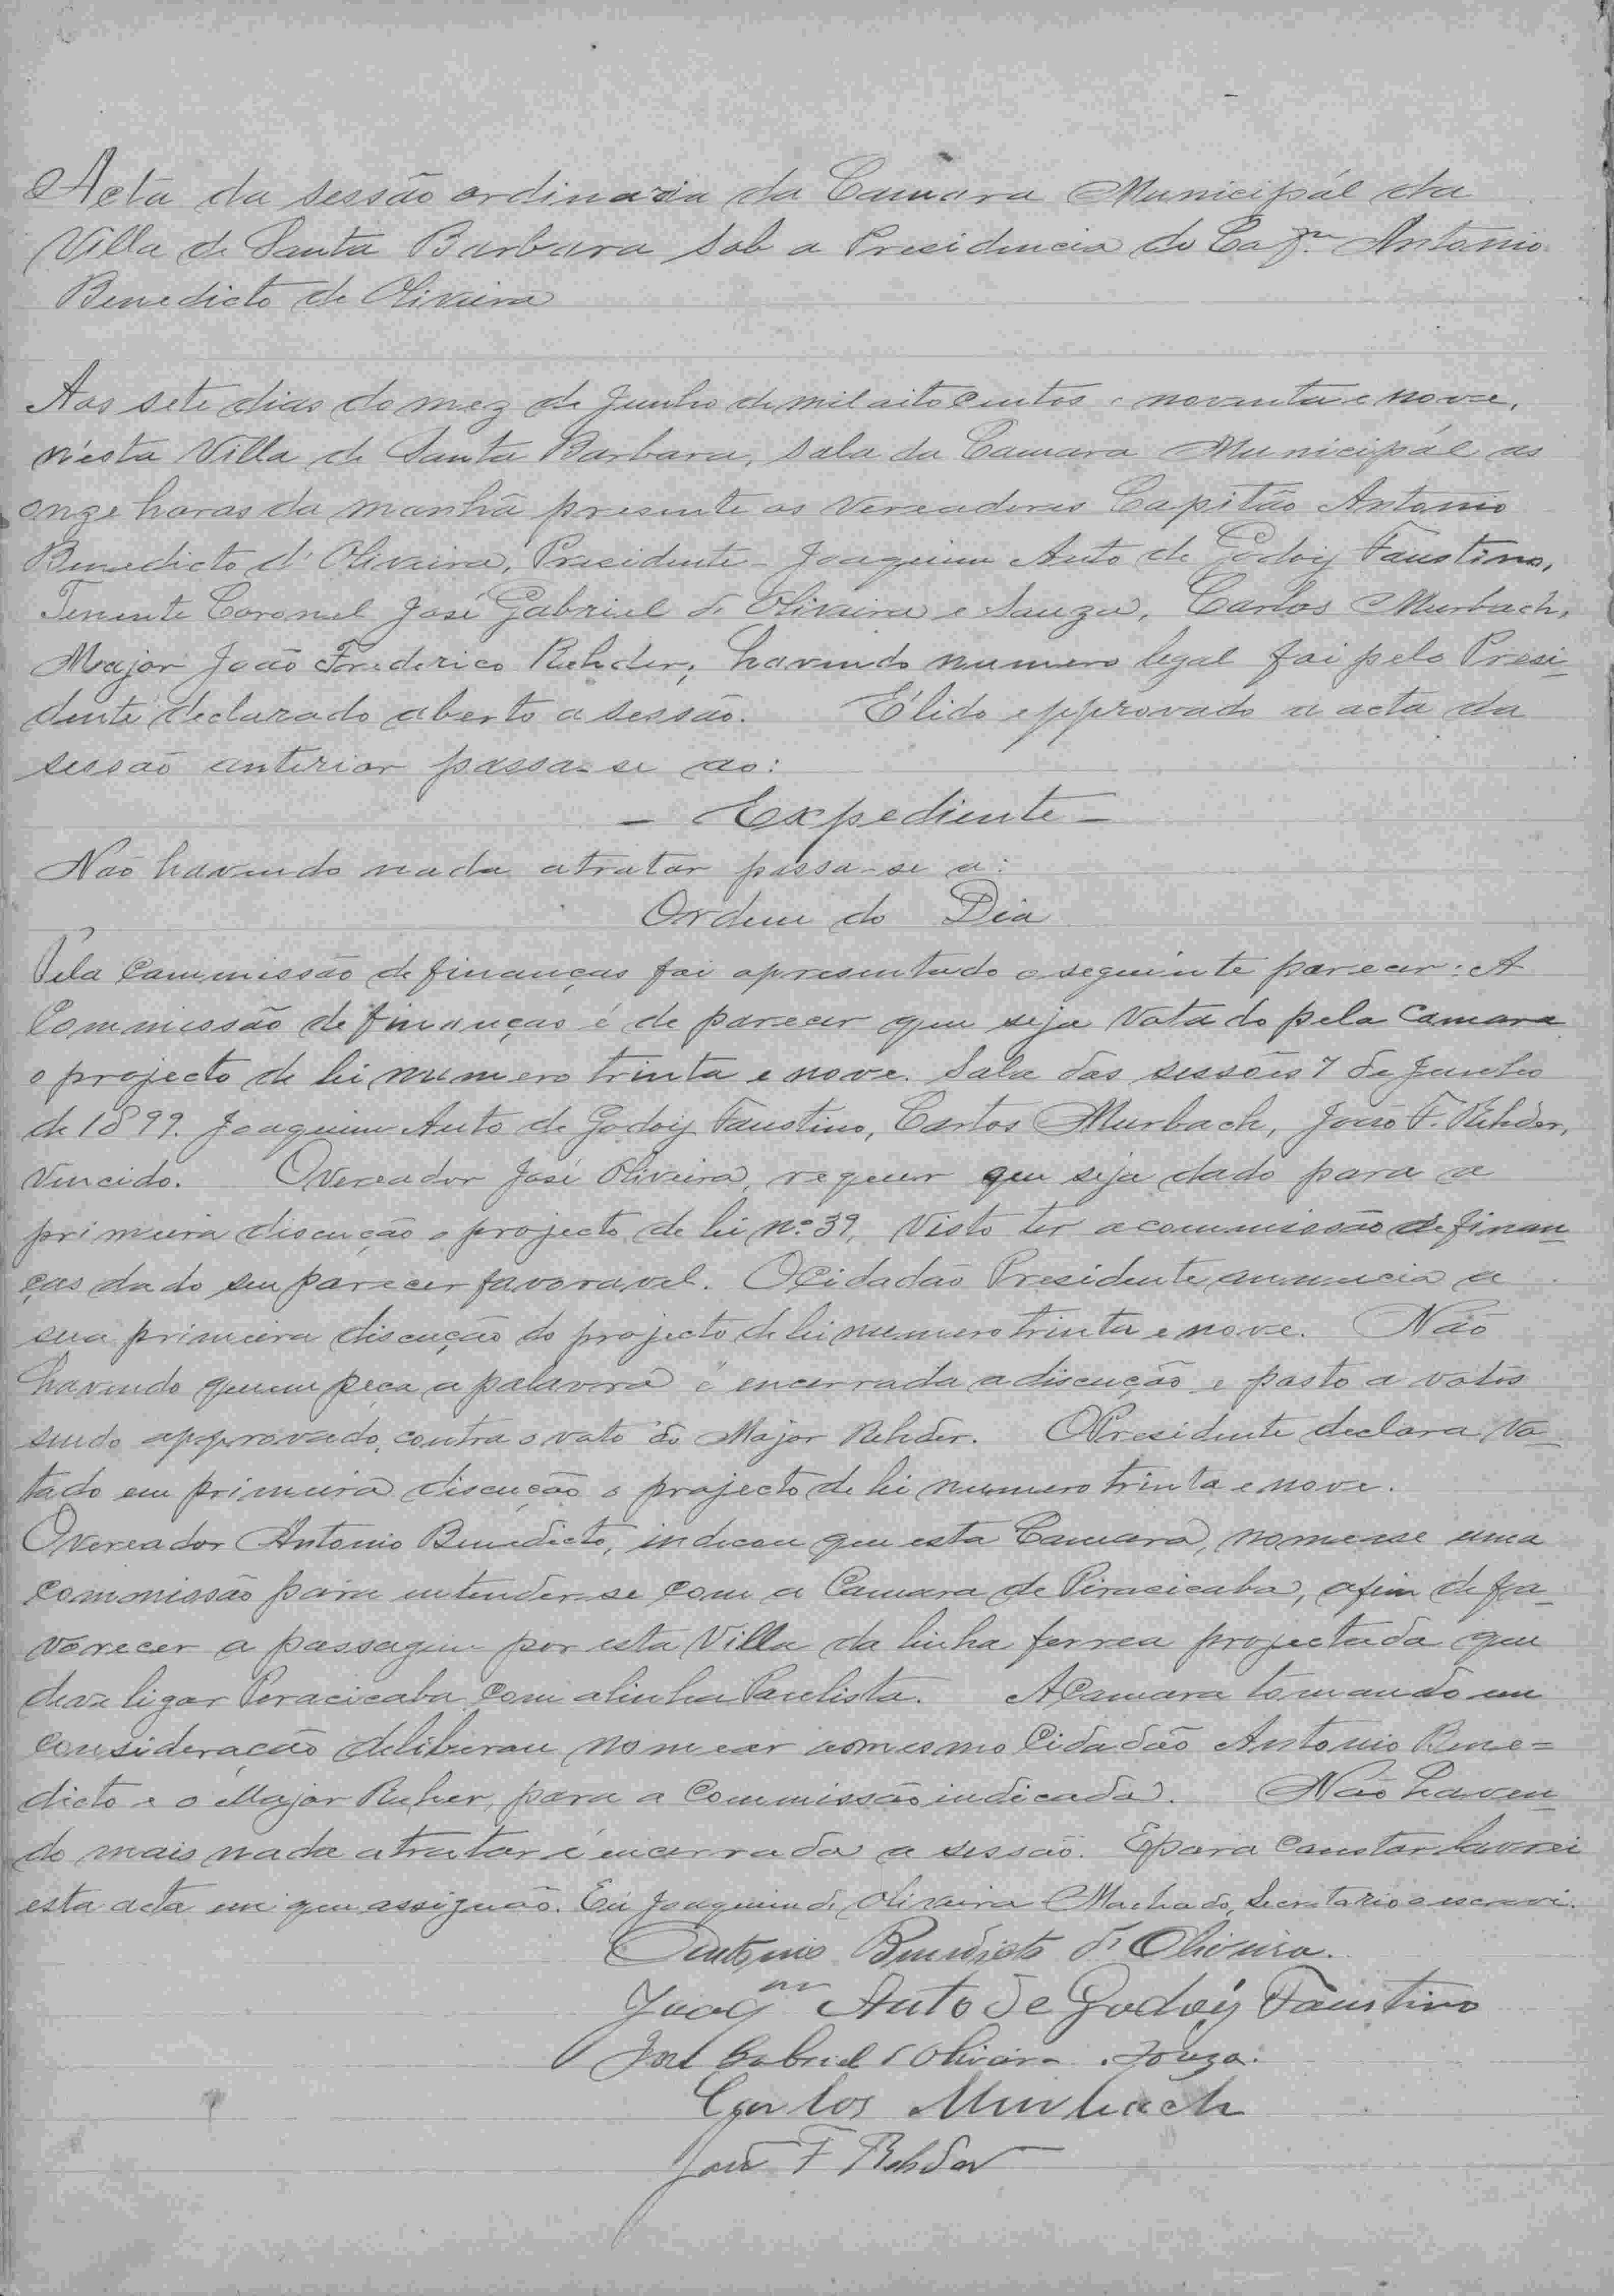 Acta da sessão ordinaria da Camara Municipál da
Villa de Santa Barbara sob a Presidencia do Capm Antonio
Benedicto de Oliveira
Aos sete dias do mez de Junho de mil aitocentos e noventa e nove,
n'esta Villa de Santa Barbara, sala da Camara Municipál as
onze horas da manhã presente os Vereadores Capitão Antonio
Benedicto d'Oliveira, Presidente - Joaquim Auto de Godoy Faustino,
Tenente Coronel José Gabriel de Oliveira e Souza, Carlos Murbach,
Major João Frederico Rehder; havendo numero legal foi pelo Presi-
dente declarado aberto a sessão. É lido e approvado a acta da
sessão anterior passa-se ao:
- Expediente -
Não havendo nada a tratar passa-se a:
Ordem do Dia
Pela Commissão de finanças foi apresentado o seguinte parecer: A
Commissão de finanças é de parecer que seja votado pela Camara
o projecto de lei numero trinta e nove. Sala das sessões 7 de Junho
de 1899. Joaquim Auto de Godoy Faustino, Carlos Murbach, João F. Rehder,
vencido. O Vereador José Oliveira, requer que seja dado para a
primeira discução o projecto de lei nº 39, visto ter a commissão de finan-
ças dado seu parecer favoravel. O Cidadão Presidente annuncia a
sua primeira discução do projecto de lei numero trinta e nove. Não
havendo quem peça a palavra é encerrada a discução e posto a votos
sendo approvado, contra o voto do Major Rehder. O Presidente declara vo-
tado em primeira discução o projecto de lei numero trinta e nove.
O Vereador Antonio Benedicto, indicou que esta Camara, nomease uma
commissão para entender-se com a Camara de Piracicaba, afim de fa-
vorecer a passagem por esta Villa da linha ferrea projectada que
deve ligar Peracicaba com a linha Paulista. A Camara tomando em
consideração deliberou nomear ao mesmo Cidadão Antonio Bene=
dicto e o Major Reher, para a Commissão indicada. Não haven-
do mais nada a tratar é encerrada a sessão. E para constar lavrei
esta acta em que assignão. Eu Joaquim de Oliveira Machado, Secretario o escrevi.
Antonio Benedicto d' Oliveira.
Joaqm Auto de Godoy Faustino
José Gabriel d Oliveira Souza.
Carlos Murbach
João F Rehder